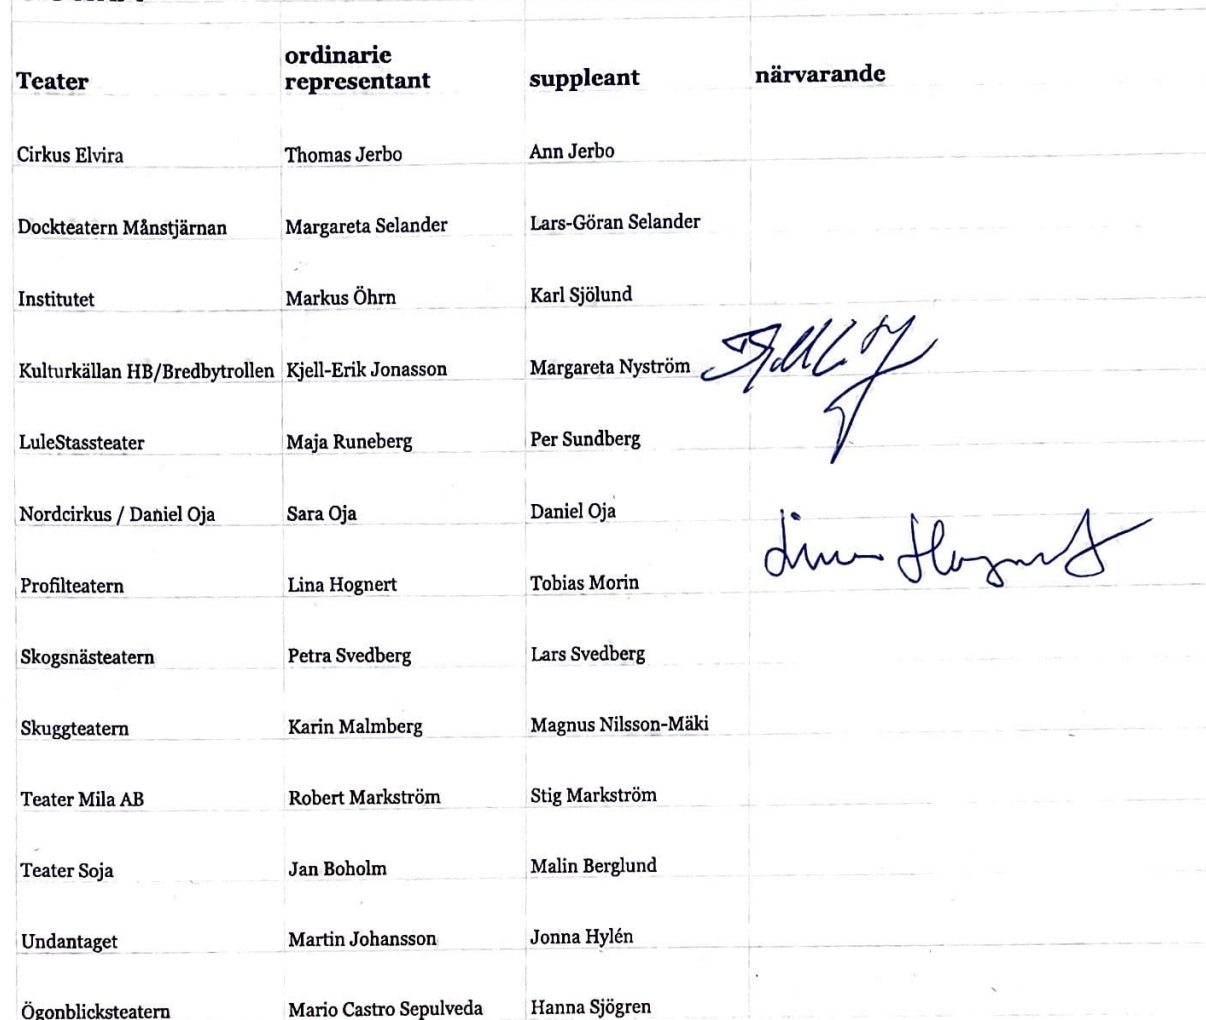 Teater ordinarie representant suppleant närvarande
Cirkus Elvira Thomas Jerbo Ann Jerbo
Dockteatern Månstjärnan Margareta Selander Lars-Göran Selander
Institutet Markus Öhrn Karl Sjölund
Kulturkällan HB/Bredbytrollen Kjell-Erik Jonasson Margareta Nyström
LuleStassteater Maja Runeberg Per Sundberg
Nordcirkus / Daniel Oja Sara Oja Daniel Oja
Profilteatern Lina Hognert Tobias Morin Lina Hognert
Skogsnästeatern Petra Svedberg Lars Svedberg
Skuggteatern Karin Malmberg Magnus Nilsson-Mäki
Teater Mila AB Robert Markström Stig Markström
Teater Soja Jan Boholm Malin Berglund
Undantaget Martin Johansson Jonna Hylén
Ögonblicksteatern Mario Castro Sepulveda Hanna Sjögren